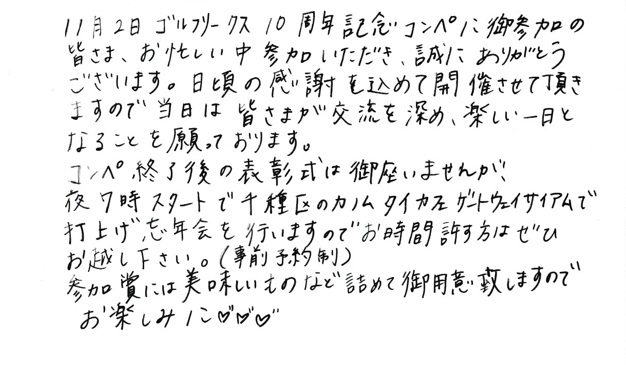 11月2日 ゴルフリークス 10周年記念コンペに御参加の
皆さま、お忙しい中参加いただき、誠にありがとう
ございます。日頃の感謝を込めて開催させて頂き
ますので当日は皆さまが交流を深め、楽しい一日と
なることを願っております。
コンペ終了後の表彰式は御座いませんが、
夜7時スタートで千種区のカノムタイカフェゲートウェイサイアムで
打上げ忘年会を行いますのでお時間許す方はぜひ
お越し下さい。(事前予約制)
参加賞には美味しいものなど詰めて御用意致しますので
お楽しみに♡♡♡